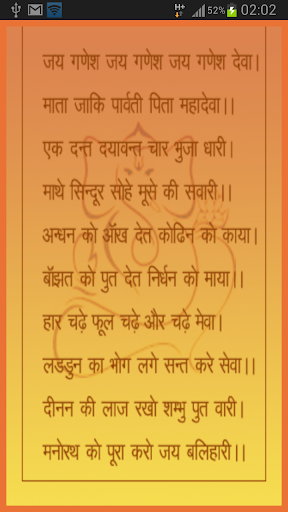 H+
52%
02:02
जय गणेश जय गणेश जय गणेश देवा।
माता जाकि पार्वती पिता महादेवा।।
एक दन्त दयावन्त चार भुजा धारी।
माथे सिन्दूर सोहे मूसे की सवारी।।
अन्धन को आँख देत कोढिन को काया।
बाँझत को पुत देत निर्धन को माया।।
हार चढ़े फूल चढ़े और चढ़े मेवा।
लडडुन का भोग लगे सन्त करे सेवा।।
दीनन की लाज रखो शम्मु पुत वारी।
मनोरथ को पूरा करो जय बलिहारी।।